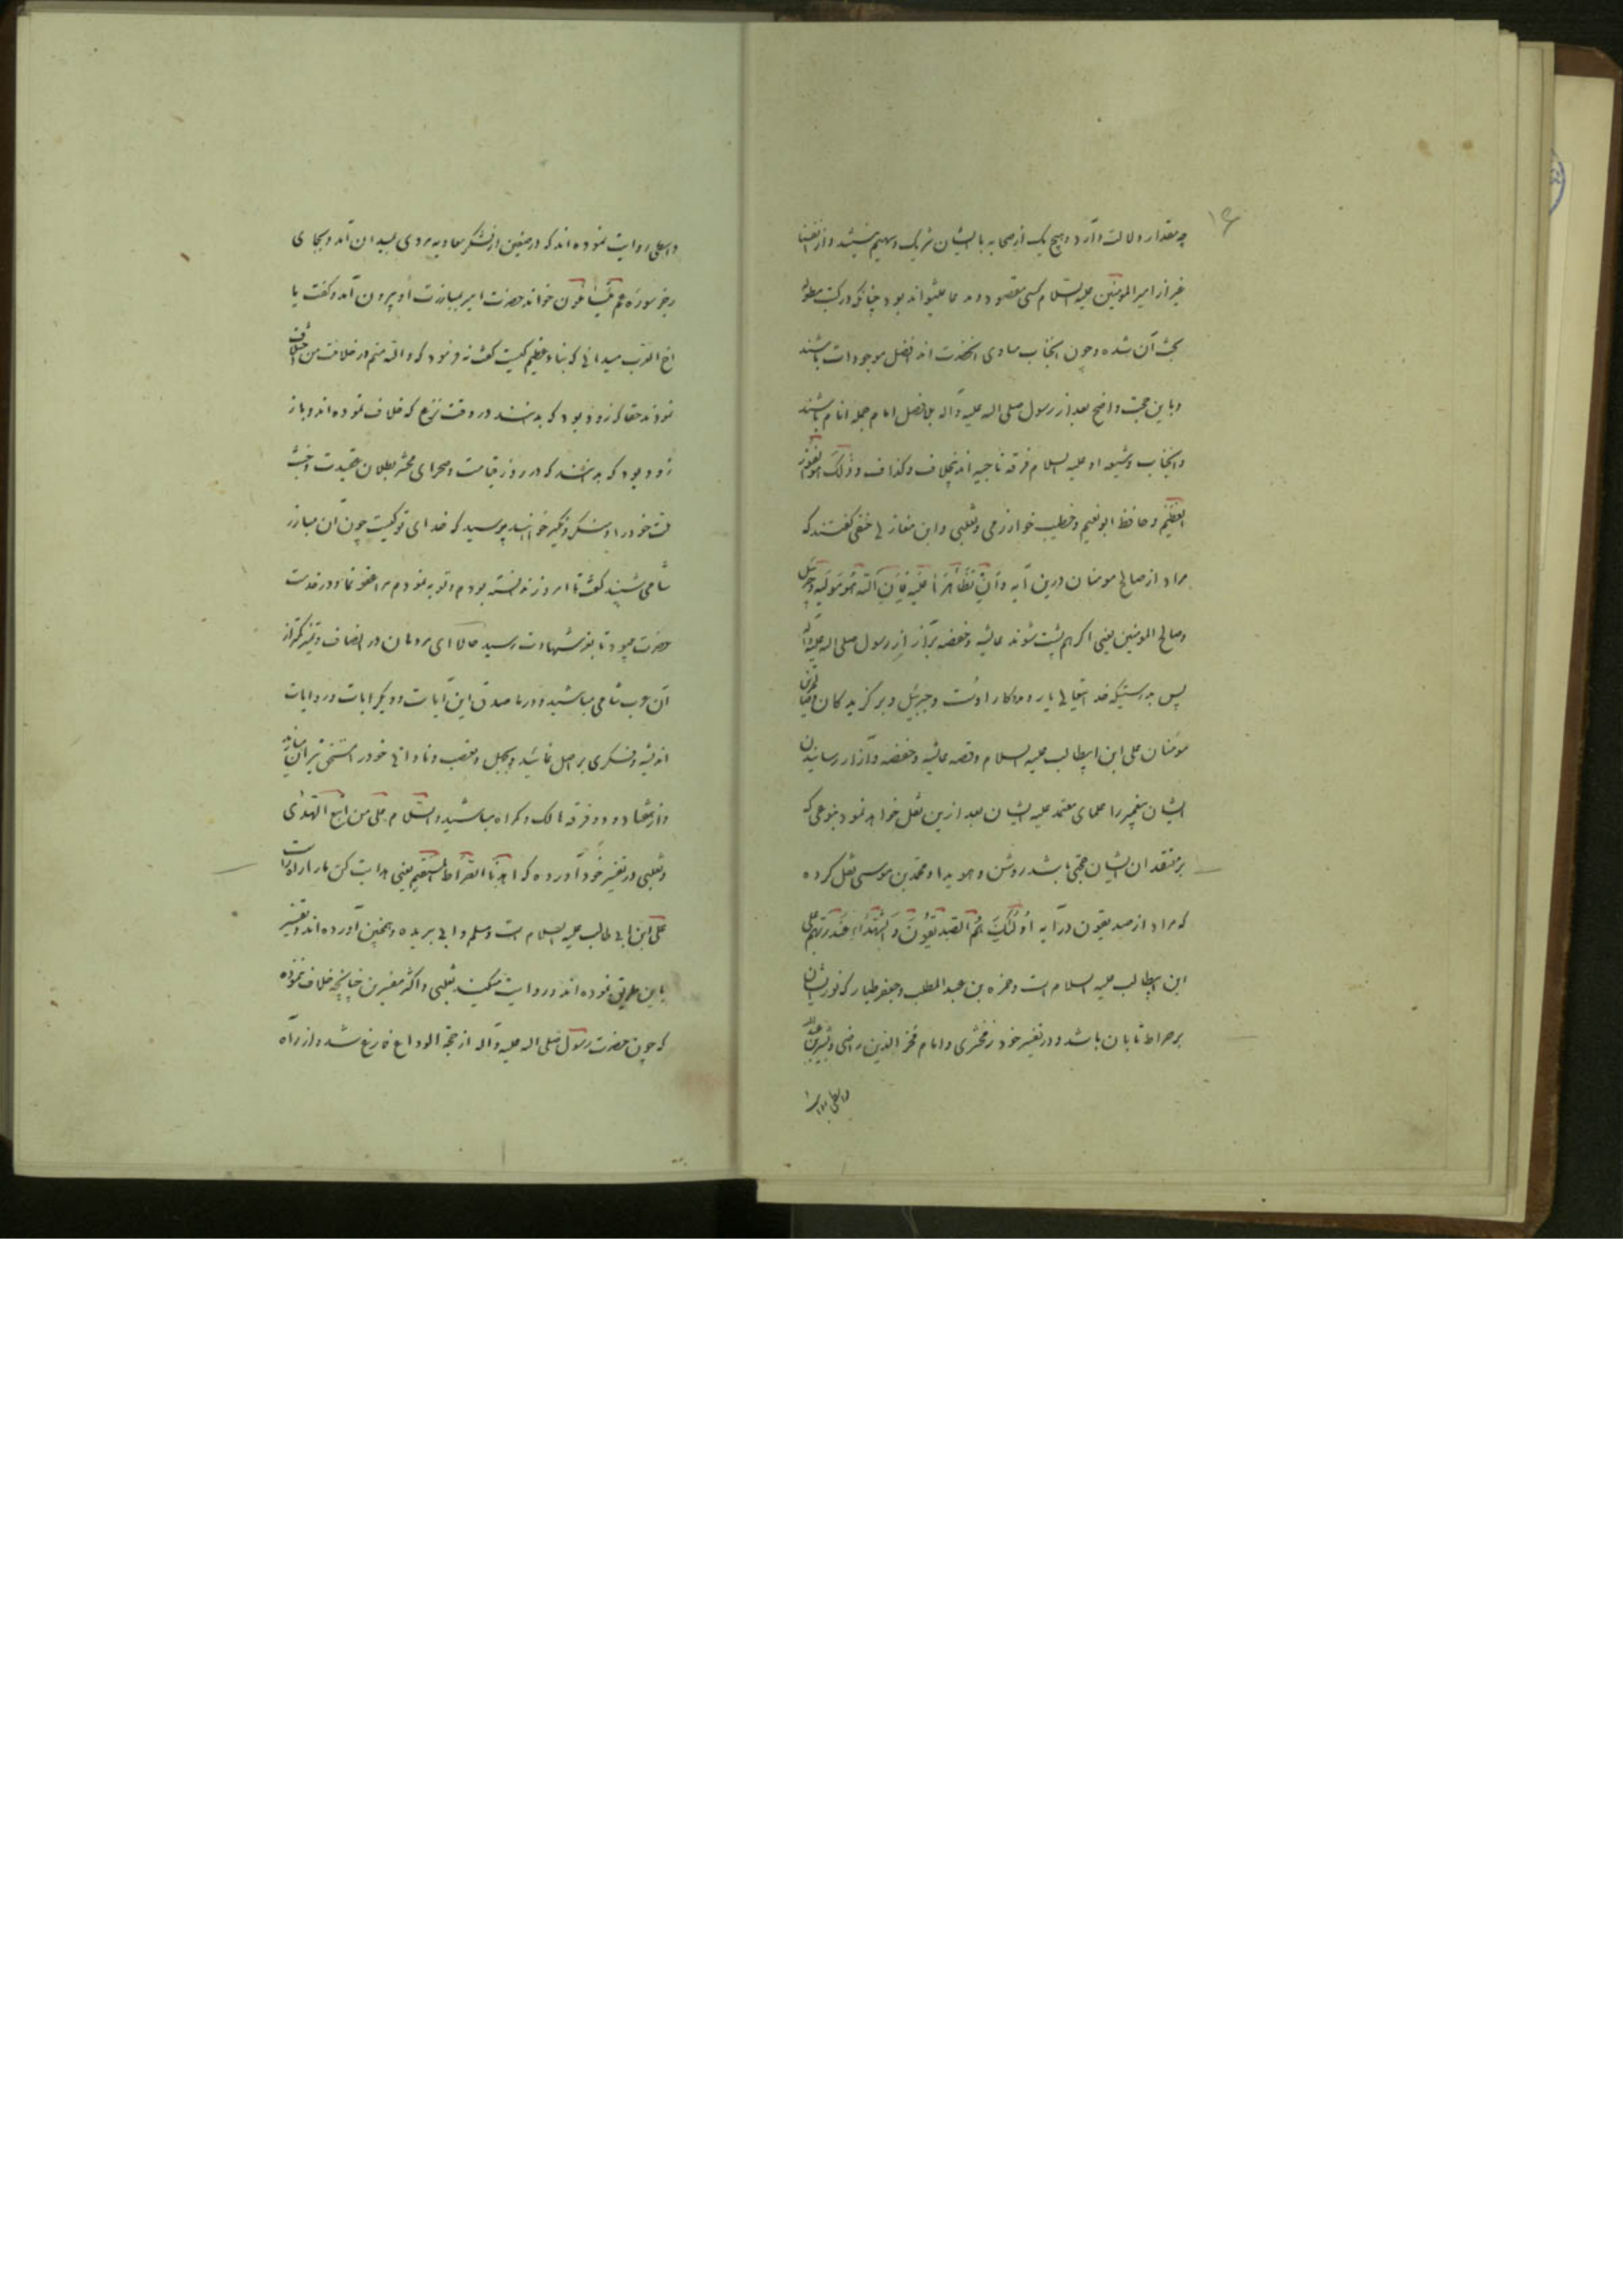 ۱۶
چه مقدار دلالت دارد و هیچ یک از صحابه با ایشان شریک و سهیم نیستند و از انفسنا
غیر از امیر المومنین علیه السلام کسی مقصود و مدعا نمیتواند بود چنانکه در کتب مطوله
بحث آن شده و چون آنجناب مساوی آنحضرت اند افضل موجودات باشند
و باین حجت واضح بعد از رسول صلی اله علیه و آله بلا فصل امام جمله انام باشند
و آنجناب و شیعه او علیه السلام فرقه ناجیه اند بخلاف و کذاف و ذٰلک هو الفوز
العظیم و حافظ ابو نعیم و خطیب خوارزمی و ثعلبی و ابن مغازلی حنفی گفتند که
مراد از صالح مومنان درین آیه وَاِنْ تَظَاهَرَا عَلَیْهِ فَاِنَّ اللّه هُوَ مَوْلَیهُ وَجبریل
وصالح المومنین یعنی اکر هم پشت شوند عایشه و حفصه بر آزار رسول صلی اله علیه و آله
پس بدرستیکه خدایتعالی یار و مددکار اوست و جبرئیل و برکزیدکان
مؤمنان علی ابن ابیطالب علیه السلام و قصه عایشه و حفصه و آزار رسانیدن
ایشان پیغمبر را علمای معتمد علیه ایشان بعد ازین نقل خواهد نمود بنوعی که
بر معتقدان ایشان حجتی باشد روشن و هویدا و محمد بن موسی نقل کرده
که مراد از صدیقون در آیه اُولٰئِکَ هُمُ الصِّدِّیقُونَ وَالشُّهَدَاءُ عِنْدَ رَبِّهِم علی
ابن ابیطالب علیه السلام است و حمزه بن عبد المطلب و جعفر طیار که نور ایشان
بر صراط تابان باشد و در تفسیر خود زمخشری و امام فخر الدین راضی و
روایت نموده اند که در صفین از لشکر معاویه مردی بمیدان آمد و بجای
رجز سوره عم یتساءلون خواند حضرت امیر بمبارزت او بیرون آمد و گفت یا
اخ العرب میدانی که نباء عظیم کیست گفت نه فرمود که واللّه منم در خلافت من اختلاف
نمودند حقا که زود بود که بدانند در وقت نزع که خلاف نموده اند و باز
زود بود که بدانند که در روز قیامت و صحرای محشر بطلان عقیدت
خود را و منکر و نکیر خواهند پرسید که خدای تو کیست چون آن مبارز
شامی شنید گفت تا امروز ندانسته بودم و توبه نمودم مرا عفو نما و در خدمت
حضرت میبود تا بفوز شهادت رسید حالا ای مردمان در انصاف و تمیز کمتر از
آن عرب شامی مباشید و در ما صدق این آیات و دیکر آیات و روایات
اندیشه و فکری بر اصل نمائید و بجهل و تعصب و نادانی خود را مستحق نیران مسازید
و از هفتاد و دو فرقه هالک و کمراه مباشید والسّلام علی من اتبع الهُدی
و ثعلبی در تفسیر خود آورده که اهدنا الصراط المستقیم یعنی هدایت کن ما را راه راست
علی ابن ابی طالب علیه السلام است و مسلم و ابی بریده و همچنین آورده اند و تفسیر
باین طریق نموده اند و روایت میکند ثعلبی و اکثر مفسرین چنانچه خلاف ننموده
که چون حضرت رسول صلی اله علیه و آله از حجة الوداع فارغ شد و از راه